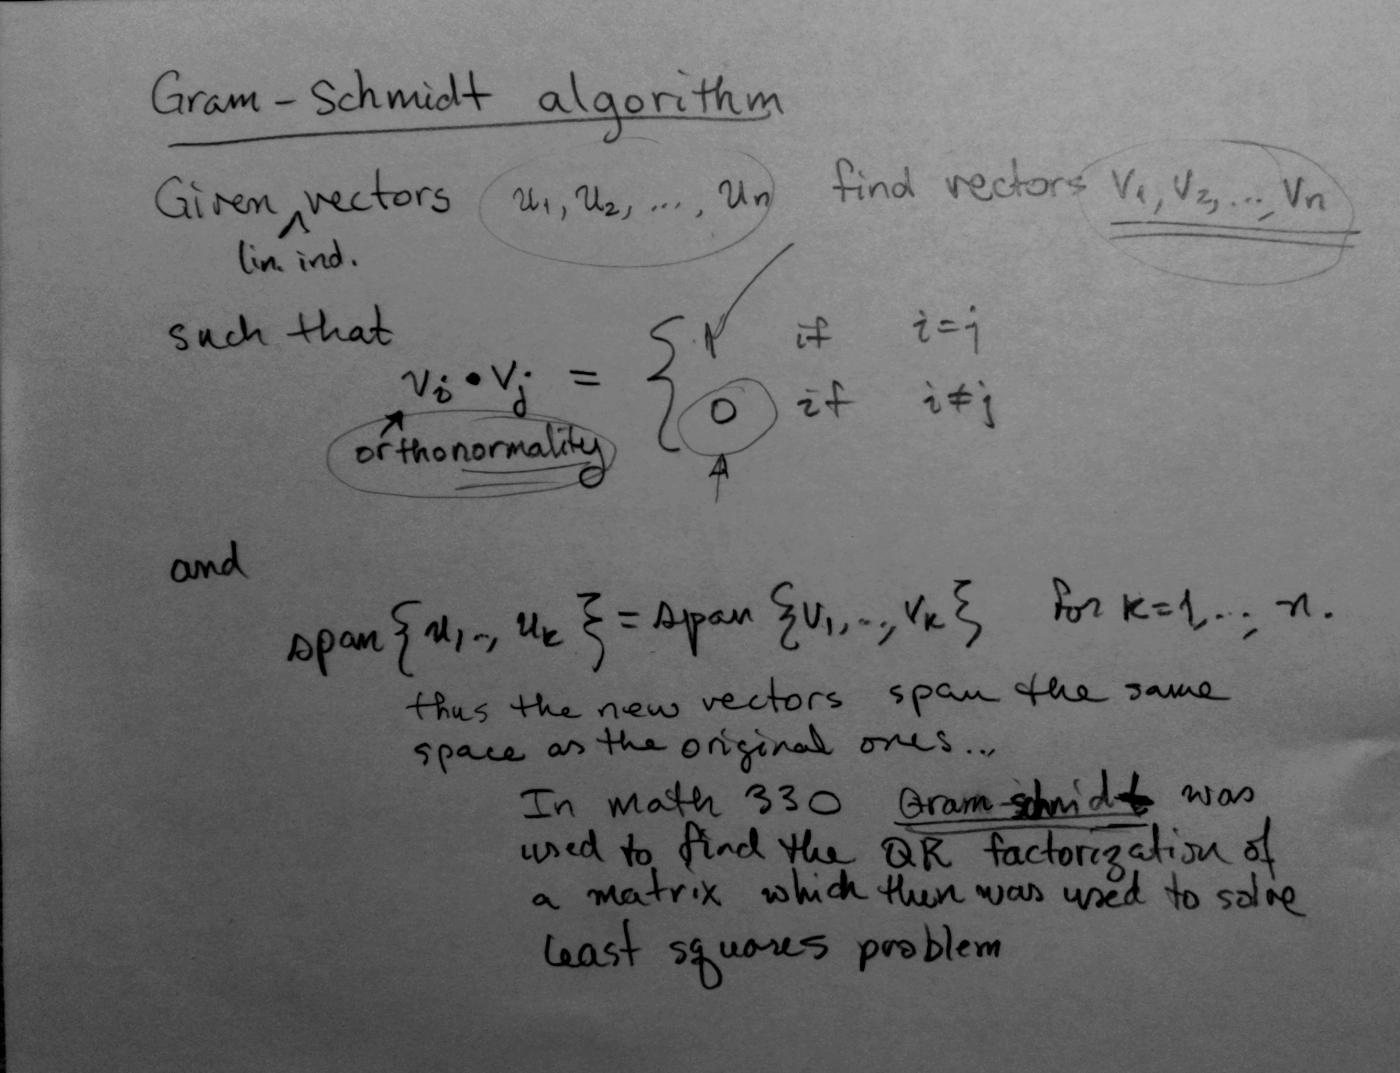 Gram-Schmidt algorithm
Given vectors u1, u2, ..., un find vectors v1, v2, ..., vn
lin. ind.
such that
vi • vj = { 1 if i=j
0 if i≠j
orthonormality
and
span{u1,.., uk} = span{v1,..,vk} for k=1,..., n.
thus the new vectors span the same
space as the original ones...
In math 330 Gram-schmidt was
used to find the QR factorization of
a matrix which then was used to solve
least squares problem